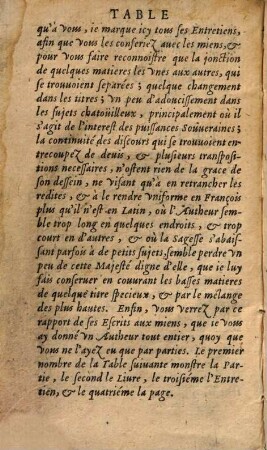 TABLE
qu'à vous, ie marque icy tous ses Entretiens,
afin que vous les conseriez auec les miens, &
pour vous faire reconnoistre que la jonction
de quelques matieres les vnes aux autres, qui
se trouuoient separées; quelque changement
dans les titres; vn peu d'adoucissement dans
les sujets chatoüilleux, principalement où il
s'agit de l'interest des puissances Souueraines;
la continuité des discours qui se trouuoient en-
trecoupez de deuis, & plusieurs transposi-
tions necessaires, n'ostent rien de la grace de
son dessein, ne visant qu'à en retrancher les
redites, & à le rendre vniforme en François
plus qu'il n'est en Latin, où l'Autheur sem-
ble trop long en quelques endroits, & trop
court en d'autres, & où la Sagesse s'abais-
sant parfois à de petits sujets, semble perdre vn
peu de cette Majesté digne d'elle, que ie luy
fais conseruer en couurant les basses matieres
de quelque titre specieux, & par le mélange
des plus hautes. Enfin, vous verrez par ce
rapport de ses Escrits aux miens, que ie vous
ay donné vn Autheur tout entier, quoy que
vous ne l'ayez eu que par parties. Le premier
nombre de la Table suiuante monstre la Par-
tie, le second le Liure, le troisiéme l'Entre-
tien, & le quatriéme la page.